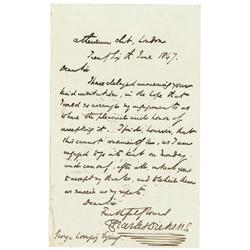 Athenæum Club, London
Twenty Sixth June 1847.
Dear Sir
I have delayed answering your
kind invitation, in the hope that
I could so arrange my engagements as to
have the pleasure and honor of
accepting it. I find, however that
this cannot be, as I am
engaged to go into Kent on Monday
and cannot, after all,
accept my thanks, and
my regrets.
Dear Sir
Faithfully Yours
Charles Dickens
George